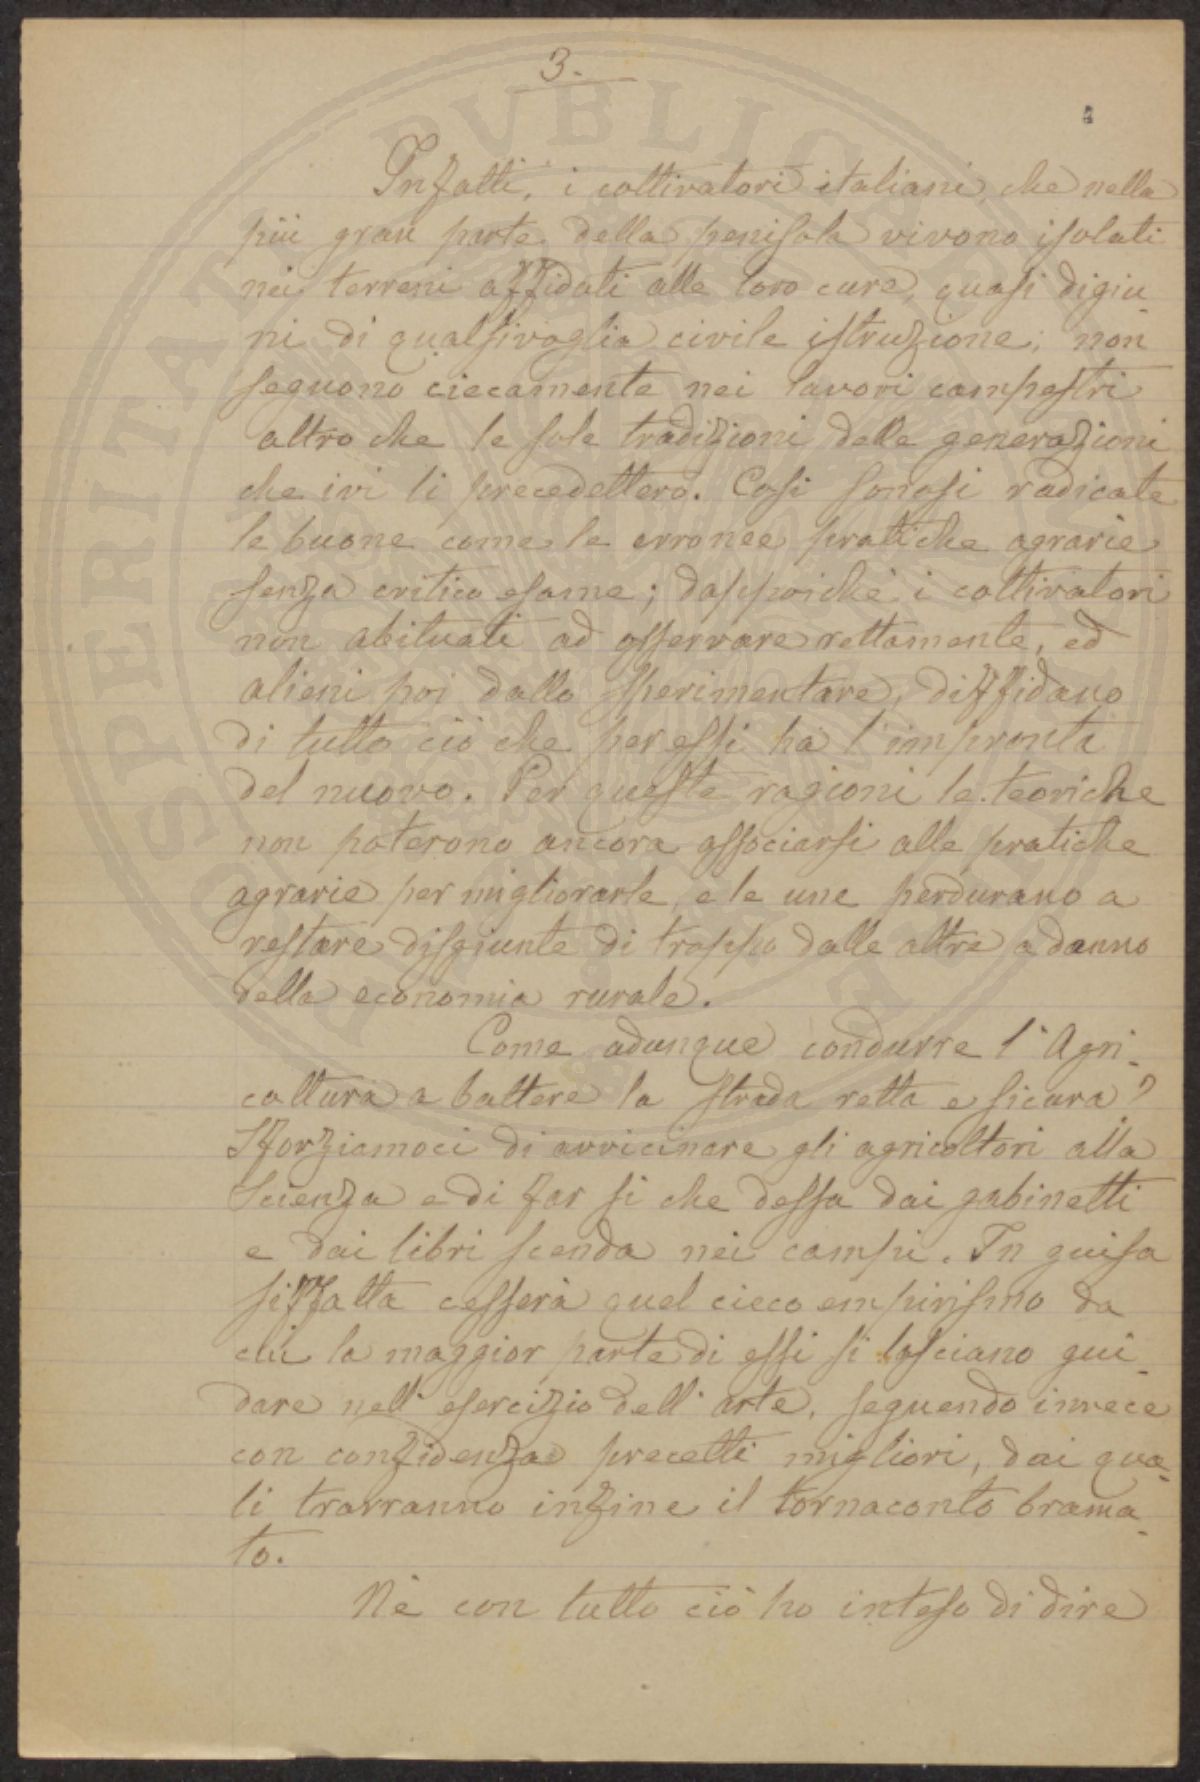 3.
4
Infatti, i coltivatori italiani, che nella
più gran parte della penisola vivono isolati
nei terreni affidati alle loro cure, quasi digiu-
ni di qualsivoglia civile istruzione; non
seguono ciecamente nei lavori campestri
altro che le sole tradizioni delle generazioni
che ivi li precedettero. Così sonosi radicate
le buone come le erronee pratiche agrarie
senza critico esame; dappoichè i coltivatori
non abituati ad osservare rettamente, ed
alieni poi dallo sperimentare, diffidano
di tutto ciò che per essi ha l'impronta
del nuovo. Per queste ragioni le teoriche
non poterono ancora associarsi alle pratiche
agrarie per migliorarle, e le une perdurano a
restare disgiunte di troppo dalle altre a danno
della economia rurale.
Come adunque condurre l'Agri-
coltura a battere la strada retta e sicura?
Sforziamoci di avvicinare gli agricoltori alla
Scienza e di far sì che dessa dai gabinetti
e dai libri scenda nei campi. In guisa
siffatta cesserà quel cieco empirismo da
cui la maggior parte di essi si lasciano gui-
dare nell'esercizio dell'arte, seguendo invece
con confidenza precetti migliori, dai qua-
li trarranno infine il tornaconto brama-
to.
Nè con tutto ciò ho inteso di dire
PROSPERITATI PVBLICAE